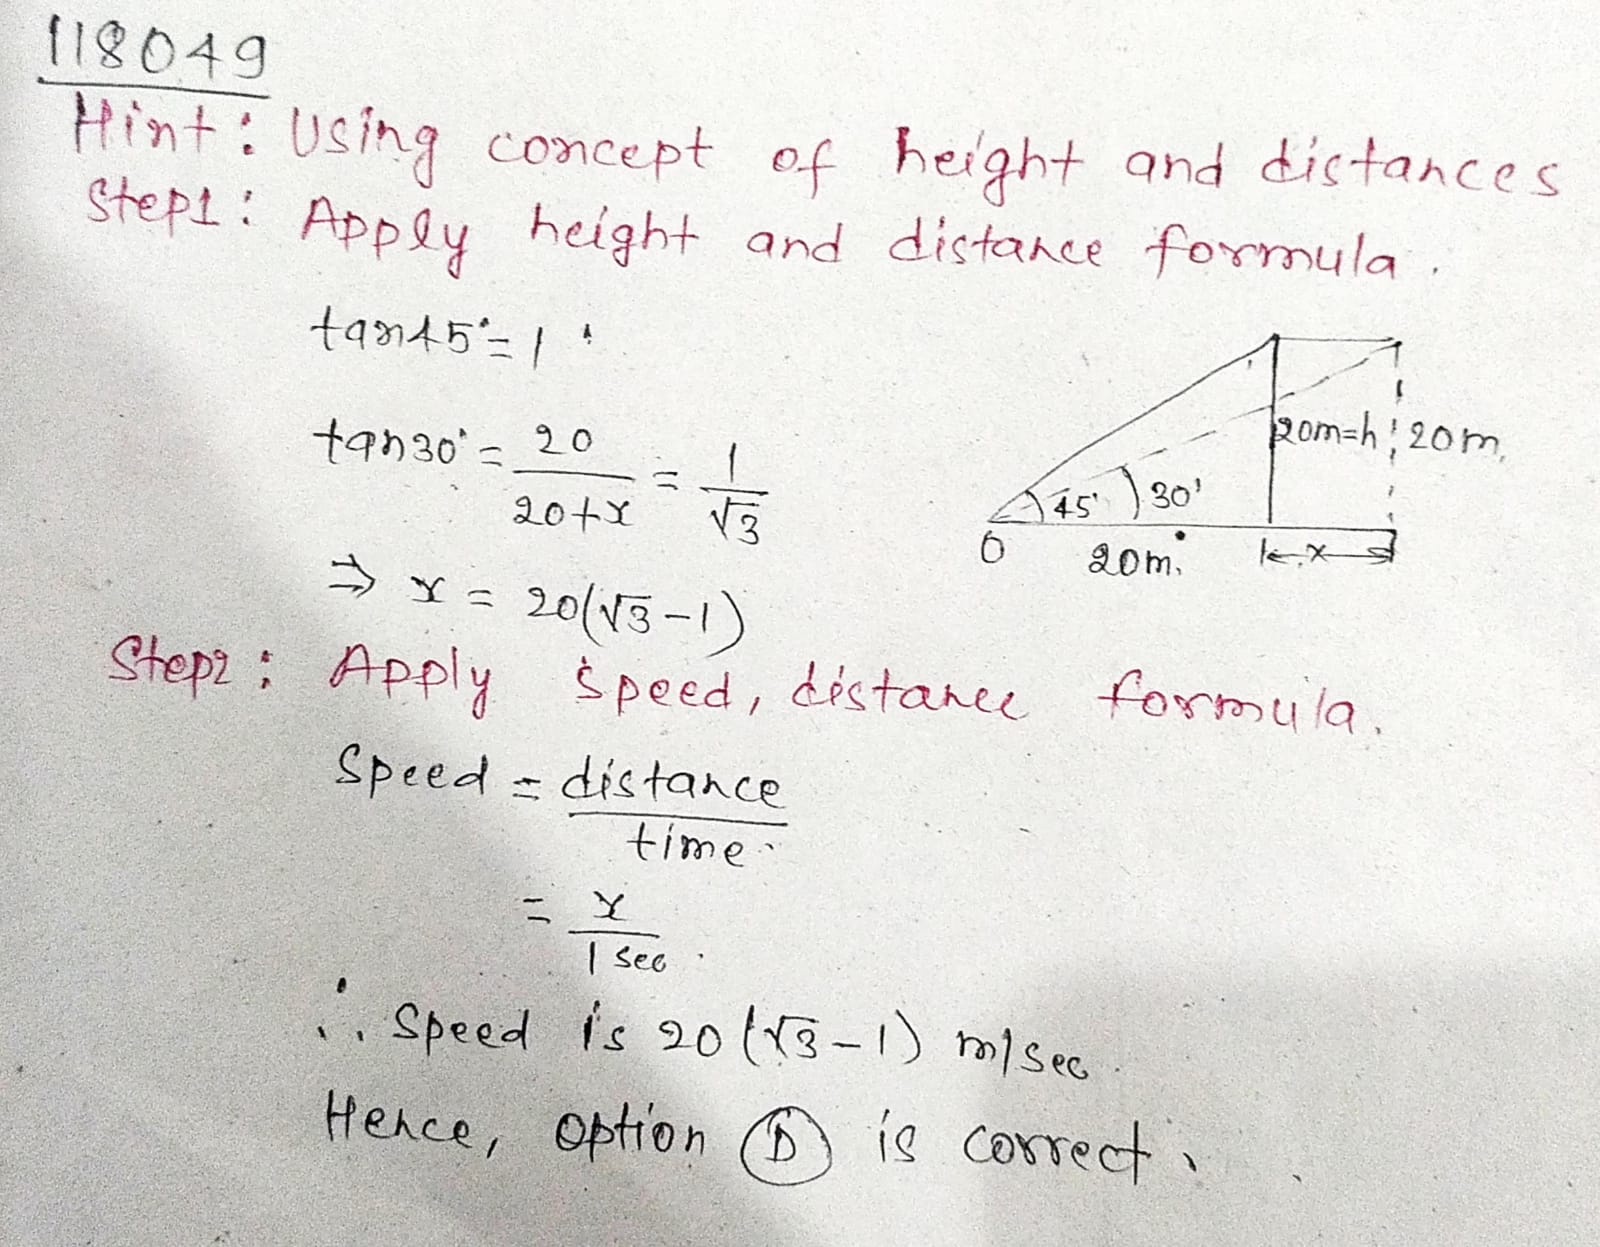 118049
Hint: Using concept of height and distances
Step1: Apply height and distance formula.
tan45°=1
tan30° = 20/20+x = 1/√3
⇒ x = 20(√3-1)
45° 30°
20m=h 20m.
O 20m. x
Step2: Apply speed, distance formula.
Speed = distance/time
= x/1 sec.
∴ Speed is 20(√3-1) m/sec.
Hence, option D is correct.